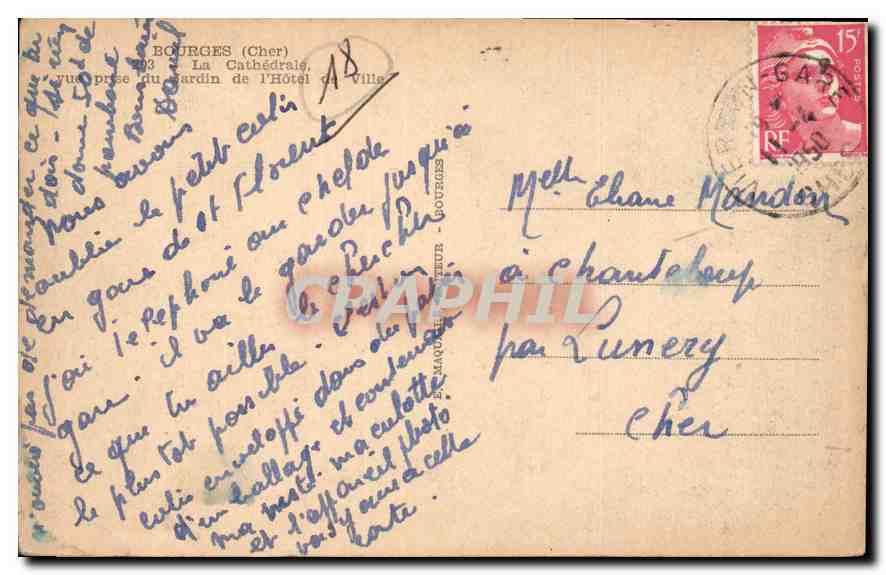 BOURGES (Cher)
893 — La Cathédrale,
vue prise du Jardin de l'Hôtel de Ville
18
nous avons
oublié le petit colis
en gare de St Florent
j'ai téléphoné au chef de
gare. il va le garder jusqu'à
ce que tu ailles le chercher
le plus tôt possible. C'est un
colis enveloppé dans du papier
d'emballage et contenant
ma veste ma culotte
et l'appareil photo.
vas y avec cette
carte.
n'oublie pas de demander ce que tu
dois
donne tout de
Bons baisers
Daniel
E. MAQUAIRE, ÉDITEUR - BOURGES
CPAPHIL
15F
POSTES
RF
VIERZON-GARE
1950
CHER
Melle Eliane Mandon
à Chanteloup
par Lunery
Cher